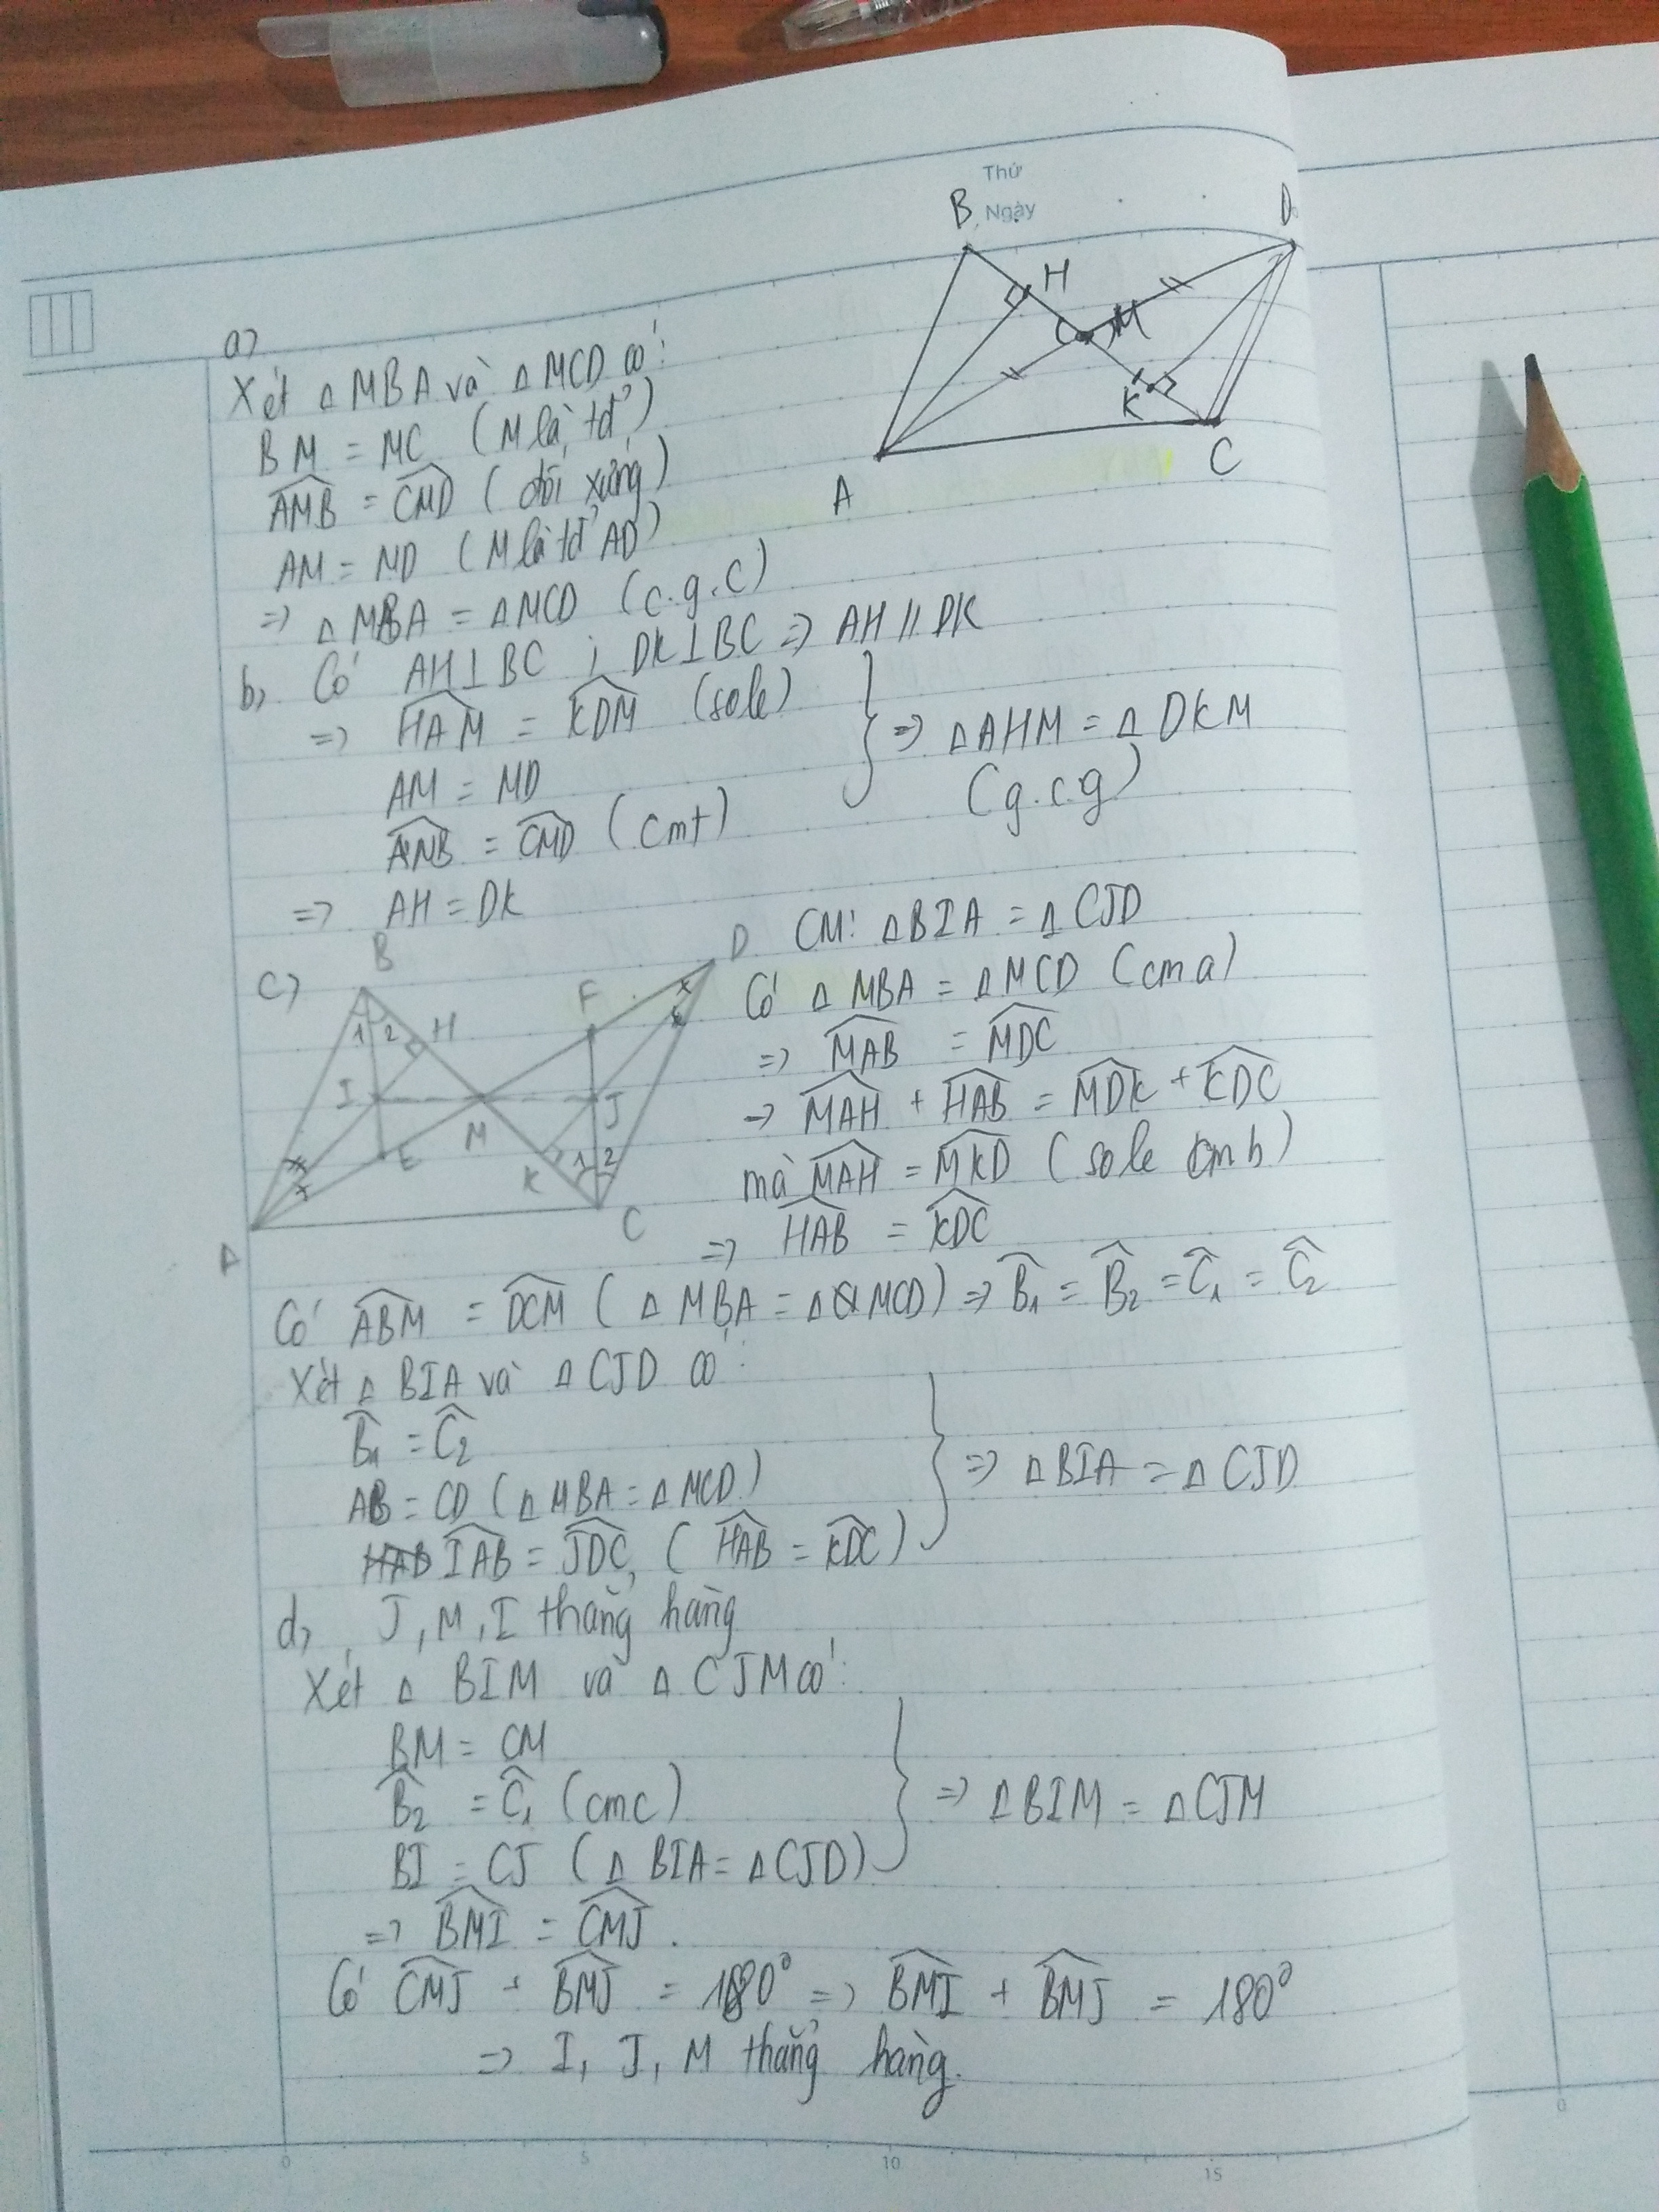 Thứ
Ngày
B
D
H
M
K
A
C
a)
Xét Δ MBA và Δ MCD có:
BM = MC (M là tđ)
AMB = CMD (đối xứng)
AM = MD (M là tđ AD)
=> Δ MBA = Δ MCD (c.g.c)
b, Có AH⊥BC ; DK⊥BC => AH // DK
=> HAM = KDM (sole)
AM = MD
AMB = CMD (cmt)
=> Δ AHM = Δ DKM
(g.c.g)
=> AH = DK
c)
B
1 2 H
F
D
I
J
M
E
K 1 2
A
C
CM: Δ BIA = Δ CJD
Có Δ MBA = Δ MCD (cm a)
=> MAB = MDC
=> MAH + HAB = MDK + KDC
mà MAH = MKD (sole cm b)
=> HAB = KDC
Có ABM = DCM (Δ MBA = Δ MCD) => B1 = B2 = C1 = C2
Xét Δ BIA và Δ CJD có:
B1 = C2
AB = CD (Δ MBA = Δ MCD)
HAB IAB = JDC, (HAB = KDC)
=> Δ BIA = Δ CJD
d, J, M, I thẳng hàng
Xét Δ BIM và Δ CJM có:
BM = CM
B2 = C1 (cmc)
BI = CJ (Δ BIA = Δ CJD)
=> Δ BIM = Δ CJM
=> BMI = CMJ.
Có CMJ + BMJ = 180° => BMI + BMJ = 180°
=> I, J, M thẳng hàng.
0 5 10 15
0